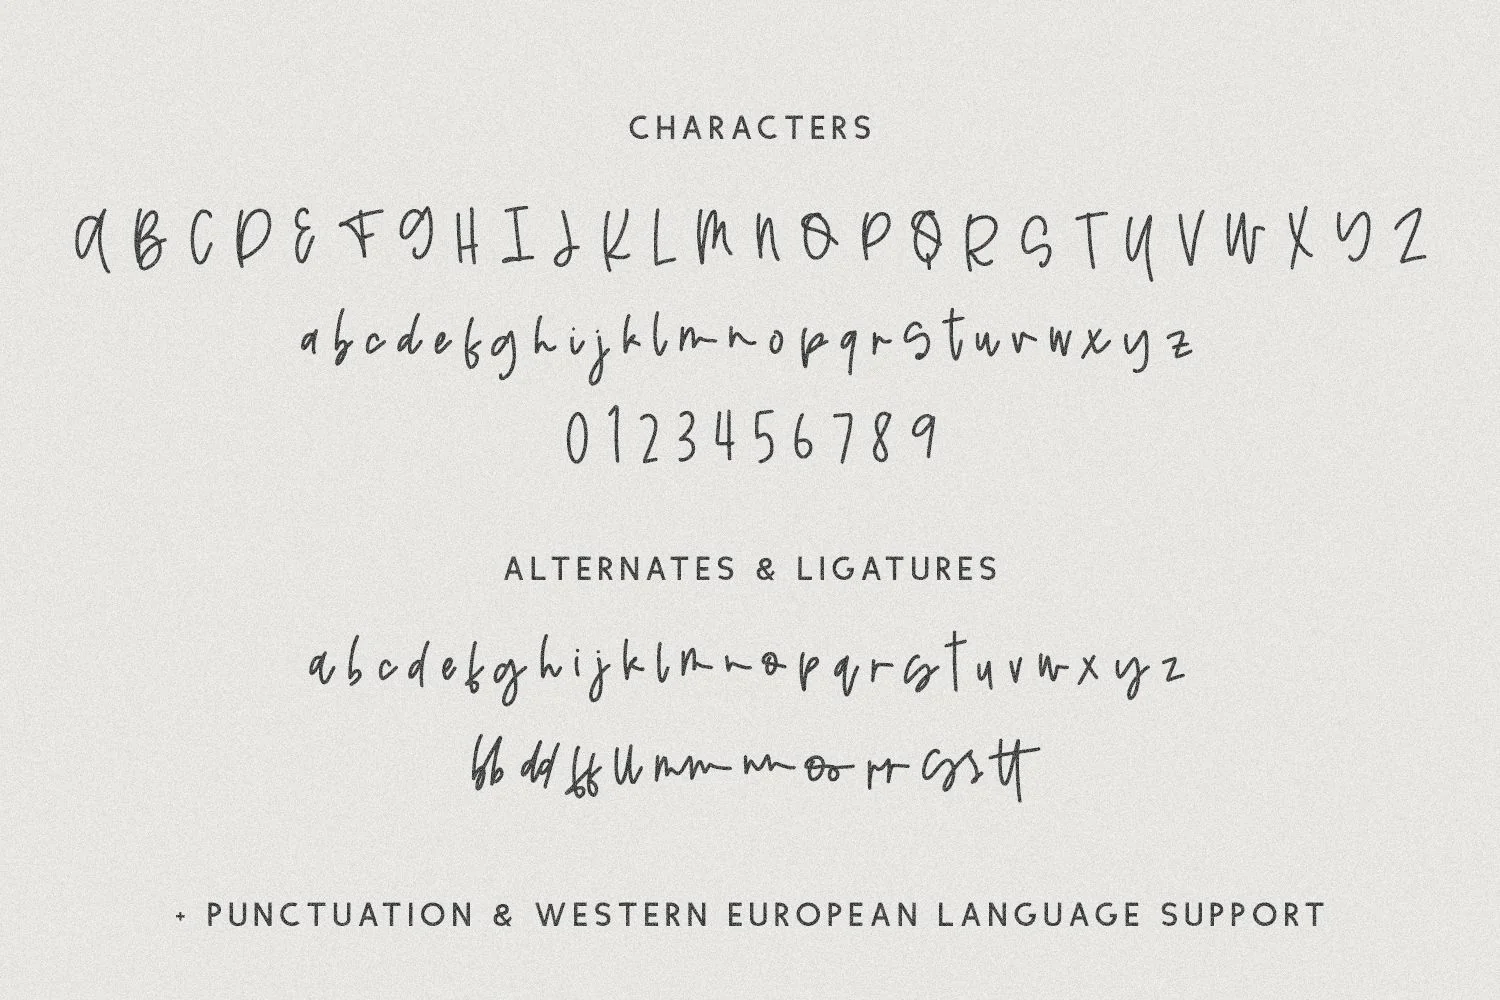 CHARACTERS
A B C D E F G H I J K L M N O P Q R S T U V W X Y Z
a b c d e f g h i j k l m n o p q r s t u v w x y z
0 1 2 3 4 5 6 7 8 9
ALTERNATES & LIGATURES
a b c d e f g h i j k l m n o p q r s t u v w x y z
bb dd ff ll mm nn oo rr ss tt
+ PUNCTUATION & WESTERN EUROPEAN LANGUAGE SUPPORT